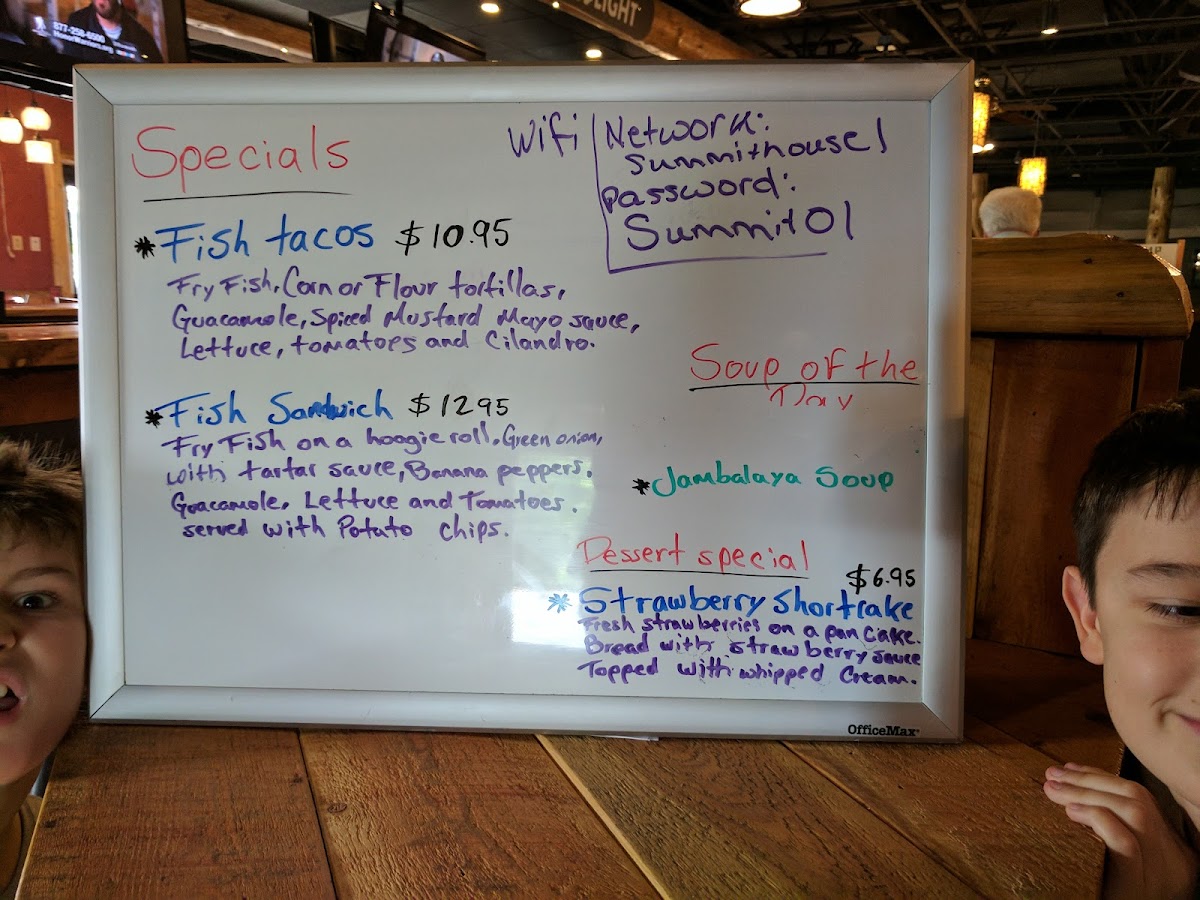 877-258-6500
Specials
Wifi
Network:
summithouse1
Password:
Summit01
* Fish tacos $10.95
Fry Fish, Corn or Flour tortillas,
Guacamole, Spiced Mustard Mayo sauce,
Lettuce, tomatoes and Cilandro.
* Fish Sandwich $1295
Fry Fish on a hoogie roll, Green onion,
with tartar sauce, Banana peppers.
Guacamole, Lettuce and Tomatoes.
served with Potato chips.
Soup of the
Day
* Jambalaya Soup
Dessert special
$6.95
* Strawberry Shortcake
Fresh strawberries on a pan Cake.
Bread with strawberry sauce
Topped with whipped Cream.
OfficeMax